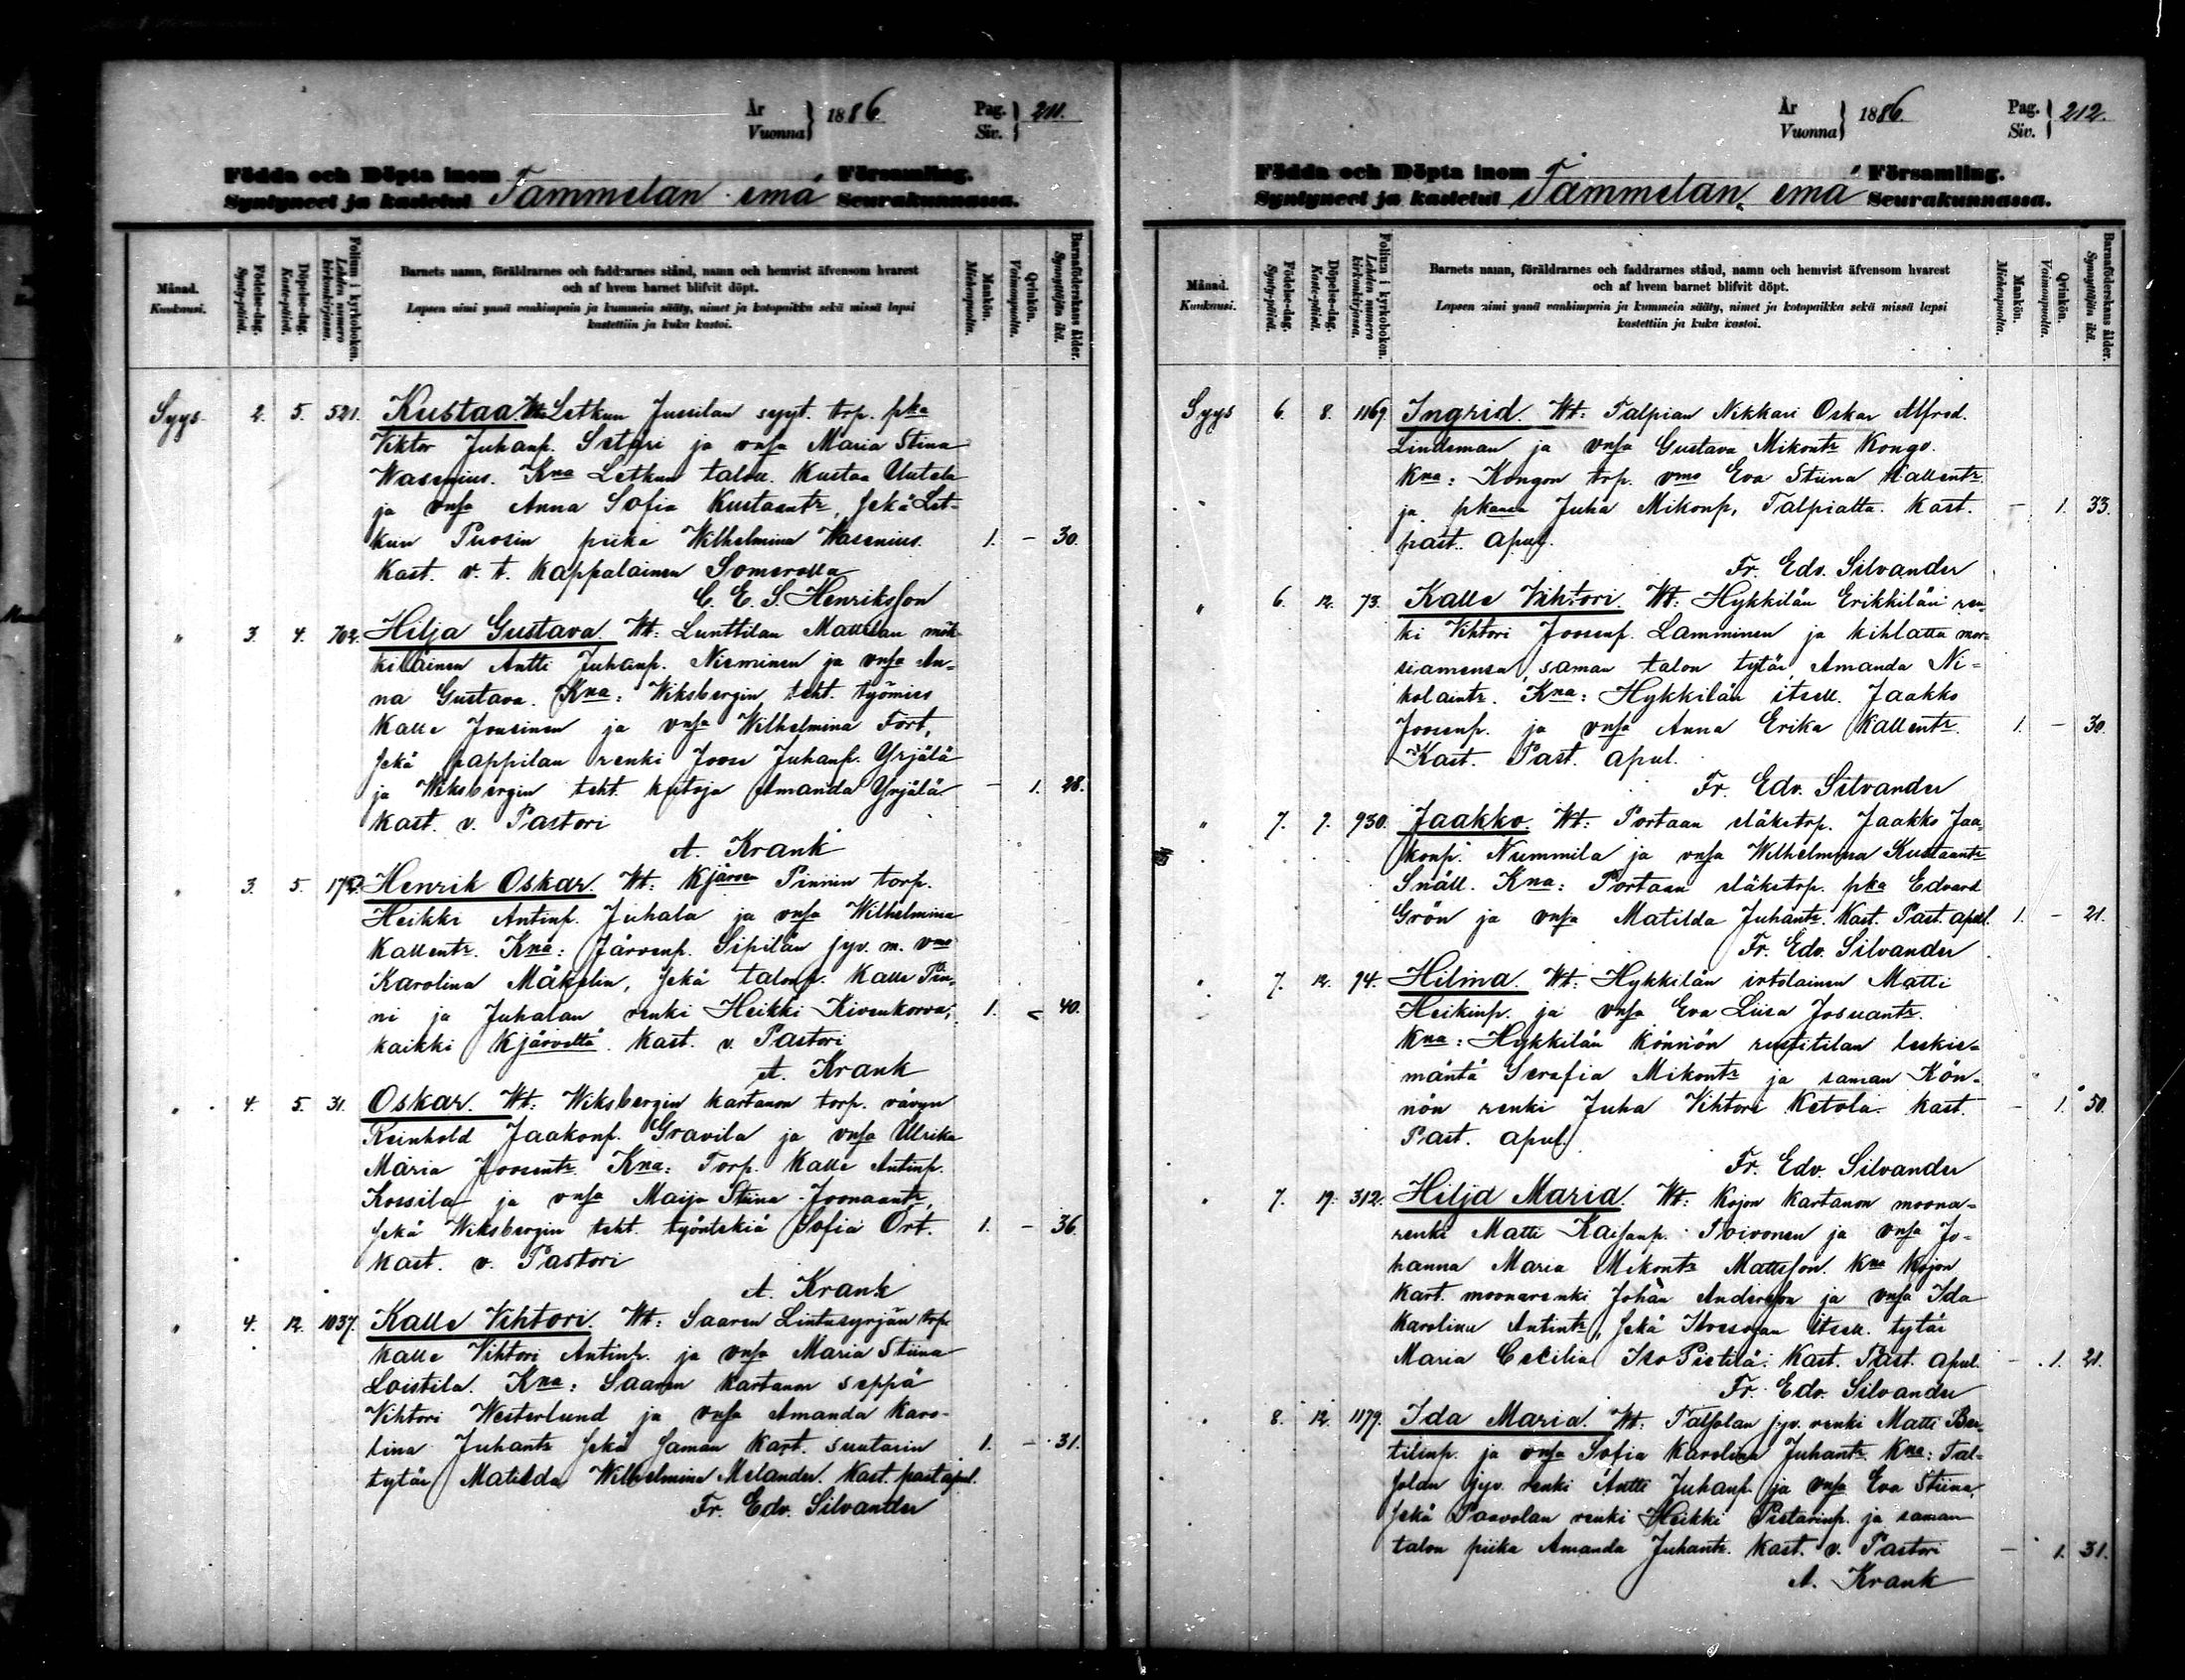 År
Vuonna } 1886.
Pag.
Siv. } 211.
Födda och Döpta inom Församling.
Syntyneet ja kastetut Tammelan emä Seurakunnassa.
Månad.
Kuukausi.
Födelse-dag.
Synty-päivä.
Döpelse-dag.
Kaste-päivä.
Folium i kyrkoboken.
Lehden numero kirkonkirjassa.
Barnets namn, föräldrarnes och faddrarnes stånd, namn och hemvist äfvensom hvarest
och af hvem barnet blifvit döpt.
Lapsen nimi ynnä vanhimpain ja kummein sääty, nimet ja kotopaikka sekä missä lapsi
kastettiin ja kuka kastoi.
Mankön.
Miehenpuolta.
Qvinkön.
Vaimonpuolta.
Barnaföderskans ålder.
Synnyttäjän ikä.
Syys 2. 5. 521. Kustaa. Wt: Letkun Jussilan syyt. torp. pka
Viktor Juhanp. Setari ja vnsa Maria Stina
Wasenius. Kna Letkun talou. Kustaa Uutela
ja vnsa Anna Sofia Kustaantr, sekä Let-
kun Puosin piika Wilhelmina Wasenius. 1. – 30.
Kast. v. t. kappalainen Somerolla
C. E. S. Henriksson
" 3. 4. 702. Hilja Gustava. Wt: Lunttilan Mattilan mök-
kiläinen Antti Juhanp. Nieminen ja vnsa An-
na Gustava. Kna: Wiksbergin teht. työmies
Kalle Jousinen ja vnsa Wilhelmina Fort,
sekä pappilan renki Joose Juhanp. Yrjälä
ja Wiksbergin teht. kutoja Amanda Yrjälä – 1. 28.
Kast. v. Pastori
A. Krank
" 3. 5. Henrik Oskar. Wt: Kjärven Pinnin torp.
Heikki Antinp. Juhala ja vnsa Wilhelmina
Kallentr. Kna: Järvenp. Sipilän jyv. m. vmo
Karolina Mäkelin, sekä talonp. Kalle Pin-
ni ja Juhalan renki Heikki Kivenkorva, 1. – 40.
kaikki Kjärveltä. Kast. v. Pastori
A. Krank
" 4. 5. 31. Oskar. Wt: Wiksbergin kartanon torp. vävyn
Reinhold Jaakonp. Gravila ja vnsa Ullrika
Maria Joosentr. Kna: Torp. Kalle Antinp.
Kossila ja vnsa Maija Stiina Joonaantr,
sekä Wiksbergin teht. työntekiä Sofia Ört. 1. – 36.
Kast. v. Pastori
A. Krank
" 4. 12. 1037. Kalle Vihtori. Wt: Saaren Lintusyrjän torp.
Kalle Vihtori Antinp. ja vnsa Maria Stiina
Loistila. Kna: Saaren kartanon seppä
Vihtori Westerlund ja vnsa Amanda Karo-
lina Juhantr sekä saman kart. suutarin 1. – 31.
tytär Matilda Wilhelmina Melander. Kast. past apul.
Fr. Edv. Silvander
År
Vuonna } 1886.
Pag.
Siv. } 212.
Födda och Döpta inom Församling.
Syntyneet ja kastetut Tammelan emä Seurakunnassa.
Månad.
Kuukausi.
Födelse-dag.
Synty-päivä.
Döpelse-dag.
Kaste-päivä.
Folium i kyrkoboken.
Lehden numero kirkonkirjassa.
Barnets namn, föräldrarnes och faddrarnes stånd, namn och hemvist äfvensom hvarest
och af hvem barnet blifvit döpt.
Lapsen nimi ynnä vanhimpain ja kummein sääty, nimet ja kotopaikka sekä missä lapsi
kastettiin ja kuka kastoi.
Mankön.
Miehenpuolta.
Qvinkön.
Vaimonpuolta.
Barnaföderskans ålder.
Synnyttäjän ikä.
Syys 6. 8. 1169. Ingrid. Wt: Talpian Nikkari Oskar Alfred.
Lindeman ja vnsa Gustava Mikontr Kongo.
Kna: Kongon torp. vmo Eva Stiina Kallentr.
ja pkansa Juha Mikonp, Talpialta. Kast. – 1. 33.
past. apul.
Fr. Edv. Silvander
" 6. 12. 73. Kalle Vihtori. Wt: Hykkilän Erikkilän ren-
ki Vihtori Joosenp. Lamminen ja kihlattu mor-
siamensa, saman talon tytär Amanda Ni-
kolaintr. Kna: Hykkilän itsell. Jaakko
Joosenp. ja vnsa Anna Erika Kallentr. 1. – 30.
Kast. Past. apul.
Fr. Edv. Silvander
" 7. 9. 930. Jaakko. Wt: Portaan släketorp. Jaakko Jaa-
konp. Nummila ja vnsa Wilhelmina Kustaantr
Snäll. Kna: Portaan släketorp. pka Edvard
Grön ja vnsa Matilda Juhantr. Kast. Past. apul. 1. – 21.
Fr. Edv. Silvander
" 7. 12. 94. Hilma. Wt: Hykkilän irtolainen Matti
Heikinp. ja vnsa Eva Liisa Josuantr.
Kna: Hykkilän Könnön rustitilan leskie-
mäntä Serafia Mikontr ja saman Kön-
nön renki Juha Vihtori Ketola. Kast. – 1. 50.
Past. apul.
Fr. Edv. Silvander
" 7. 19. 312. Hilja Maria. Wt: Kojon kartanon moona-
renki Matti Kaisanp. Toivonen ja vnsa Jo-
hanna Maria Mikontr Mattsson. Kna Kojon
kart. moonarenki Johan Andersson ja vnsa Ida
Karolina Antintr, sekä itsell. tytär
Maria Cecilia Iso Pietilä. Kast. Past. apul. – 1. 21.
Fr. Edv. Silvander
" 8. 12. 1179. Ida Maria. Wt: jyv. renki Matti Ber-
tilinp. ja vnsa Sofia Karolina Juhantr. Kna: Tal-
jyv. renki Antti Juhanp. ja vnsa Eva Stiina,
sekä Paavolan renki Heikki Pietarinp. ja saman
talon piika Amanda Juhantr. Kast. v. Pastori – 1. 31.
A. Krank